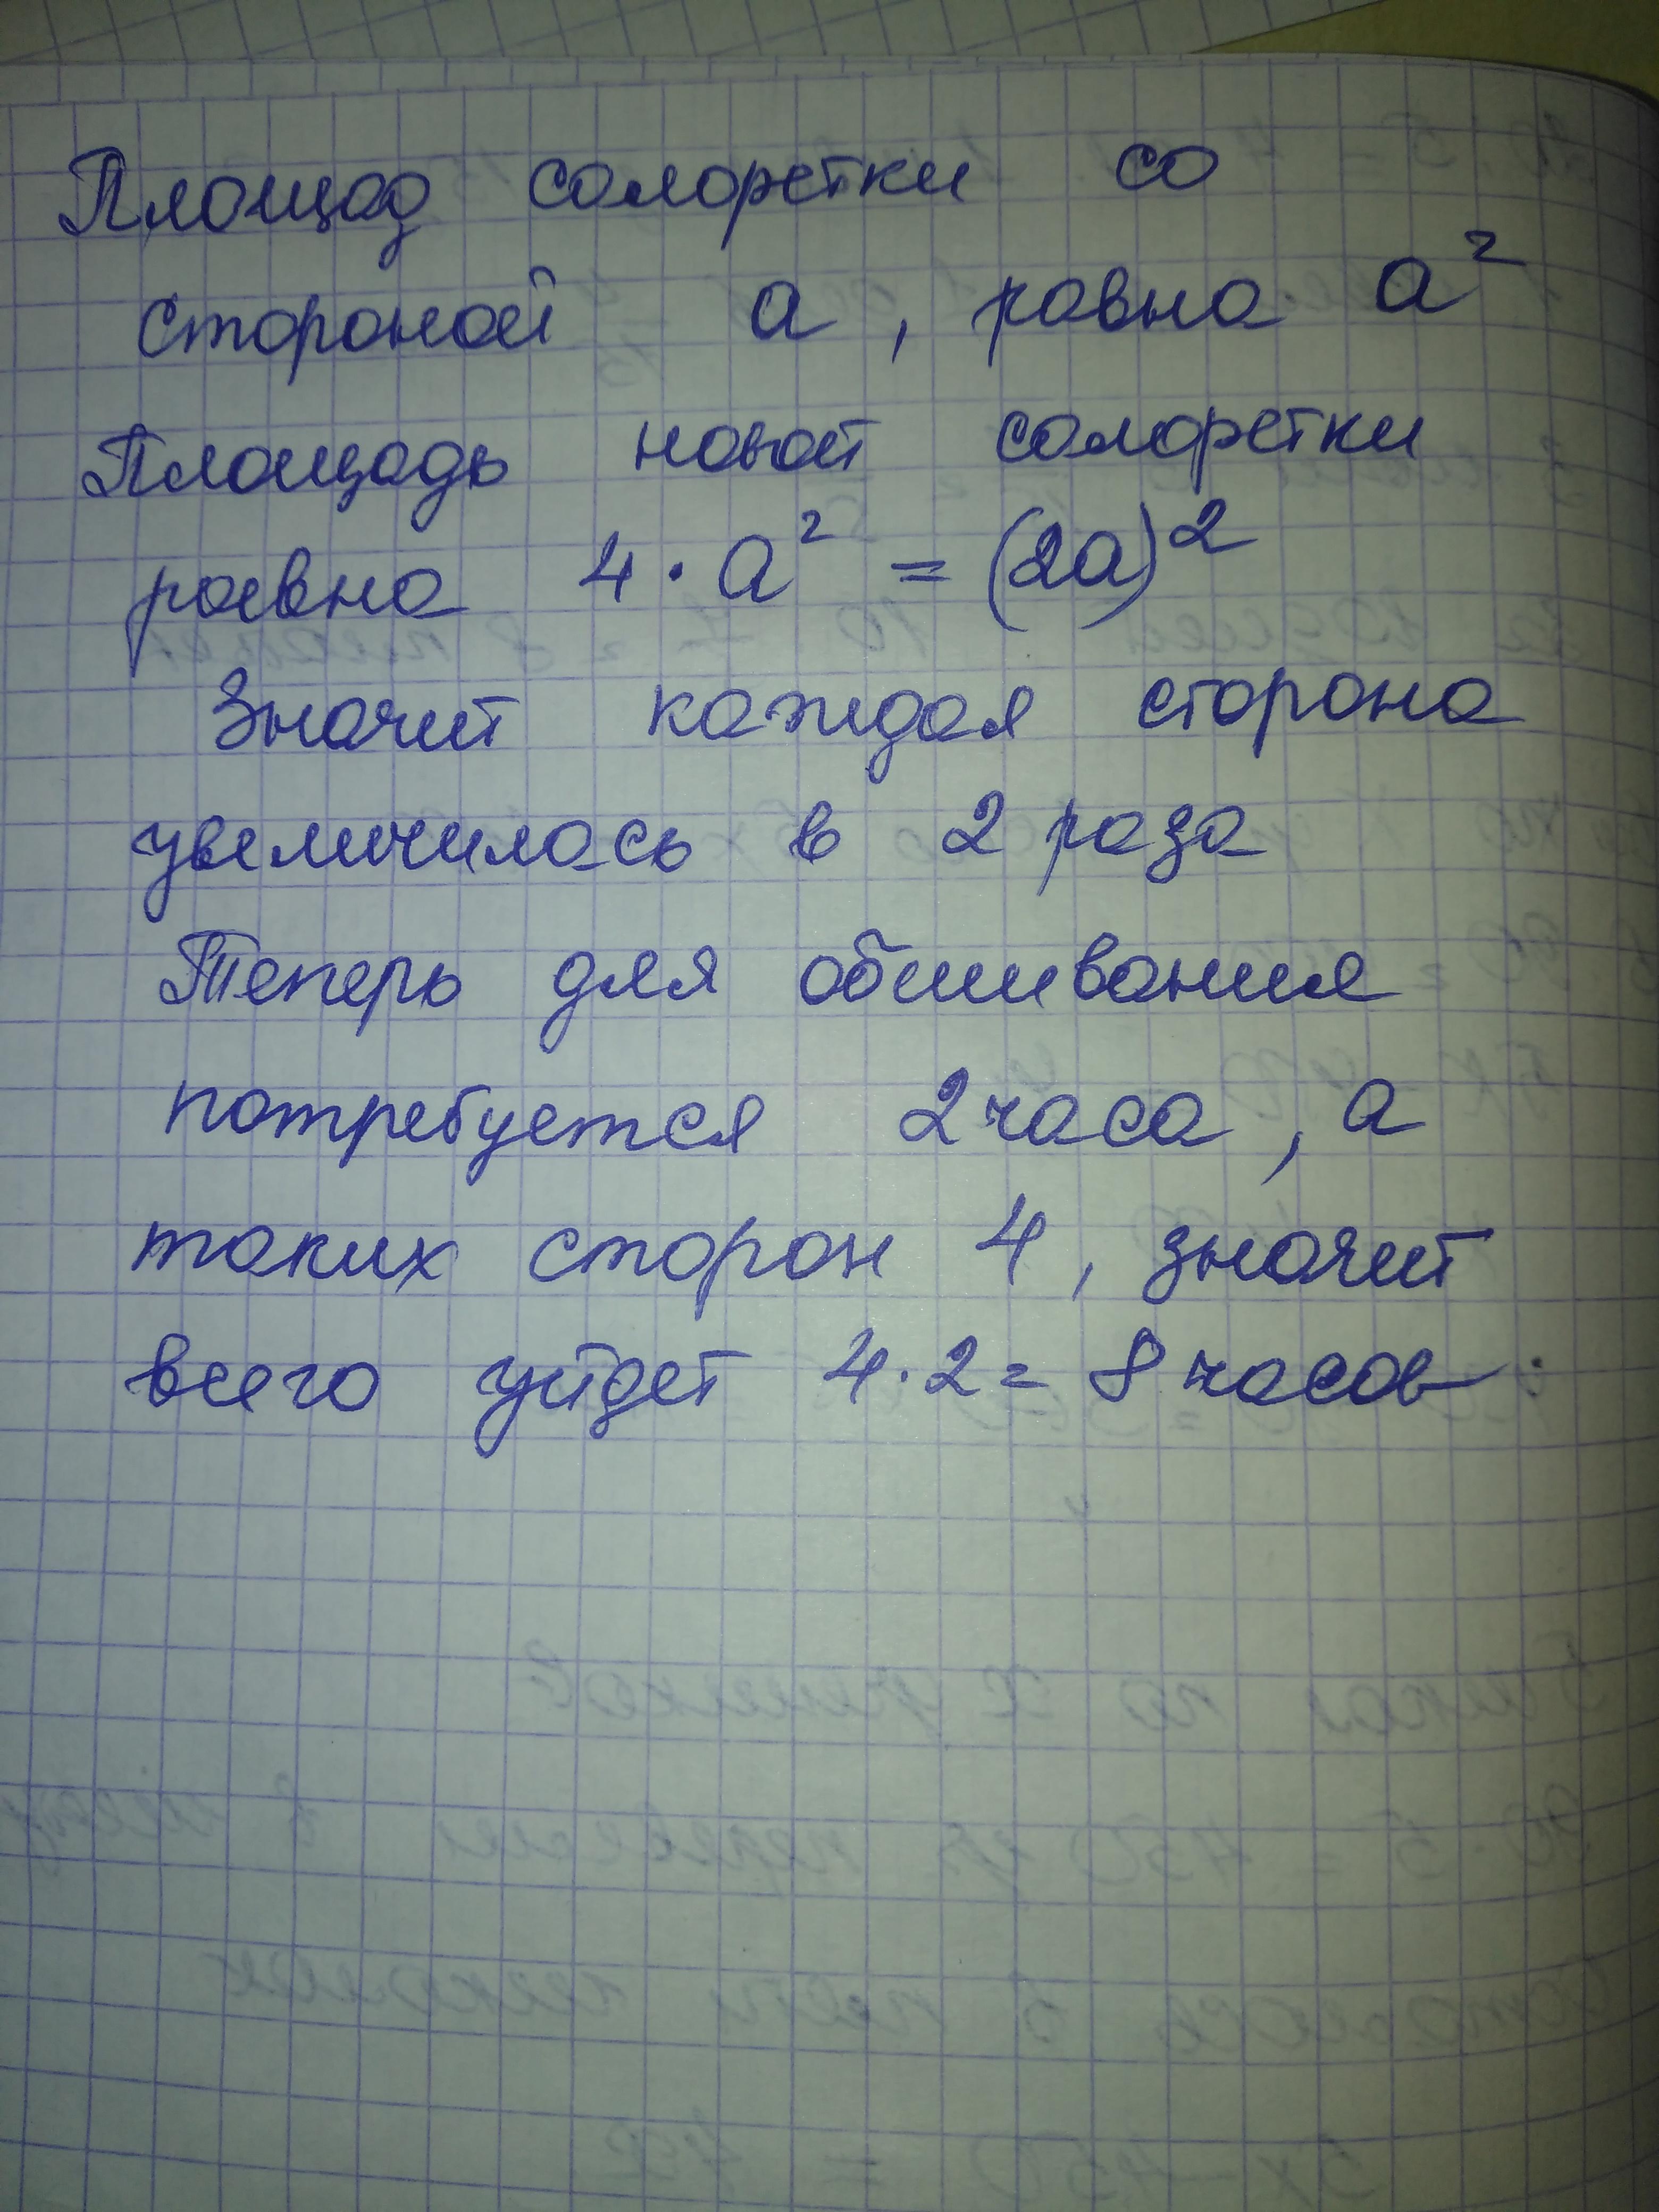 Площад салфретки со
стороной a, равна a²
Площадь новой салфретки
раевна 4 · a² = (2a)²
Значит каждая сторона
увеличилась в 2 раза
Теперь для обшивания
потребуется 2 часа, а
таких сторон 4, значит
всего уйдет 4 · 2 = 8 часов.